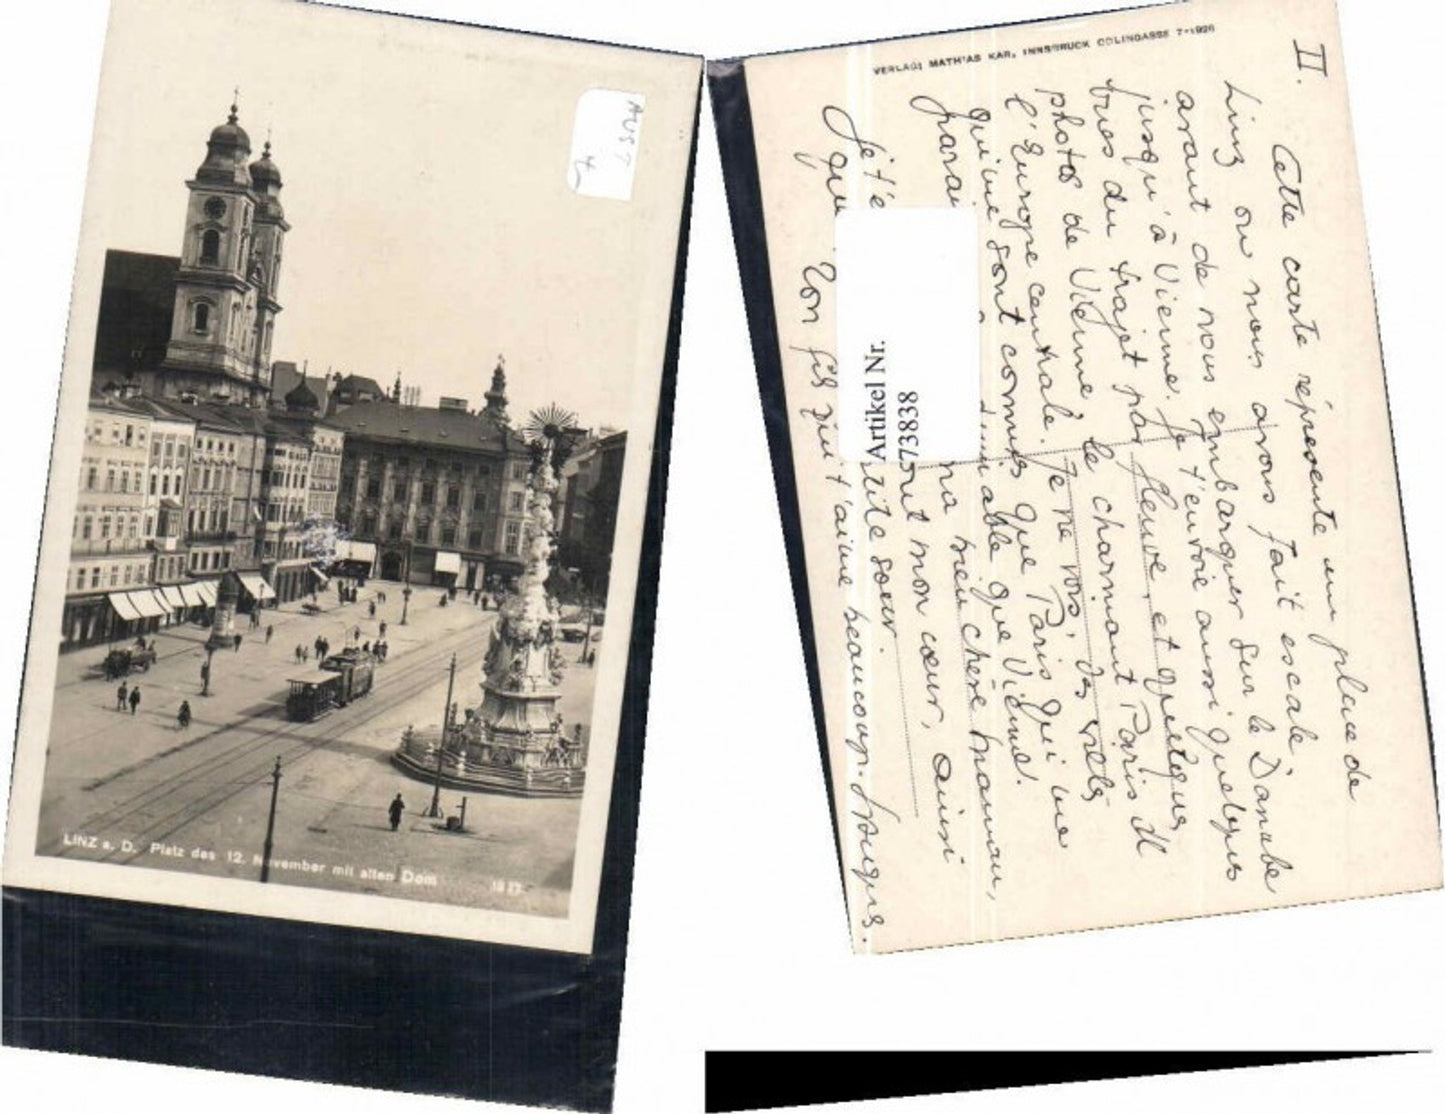 AUS 7
LINZ a. D. Platz des 12. November mit alten Dom 1927
VERLAG: MATHIAS KAR, INNSBRUCK COLINGASSE 7-1926
II.
Cette carte répresente une place de
Linz ou nous avons fait escale,
avant de nous embarquer sur le Danube
jusqu'à Vienne. Je t'envoie aussi quelques
vues du trajet par fleuve, et quelques
photos de Vienne le charmant Paris d
l'Europe centrale. Je ne vois, des villes
qui me sont connues que Paris qui me
parai aimable que Vienne.
ma bien chère maman,
Je t'e tout mon cœur, ainsi
que petite soeur.
Ton fils qui t'aime beaucoup.
Artikel Nr.
573838